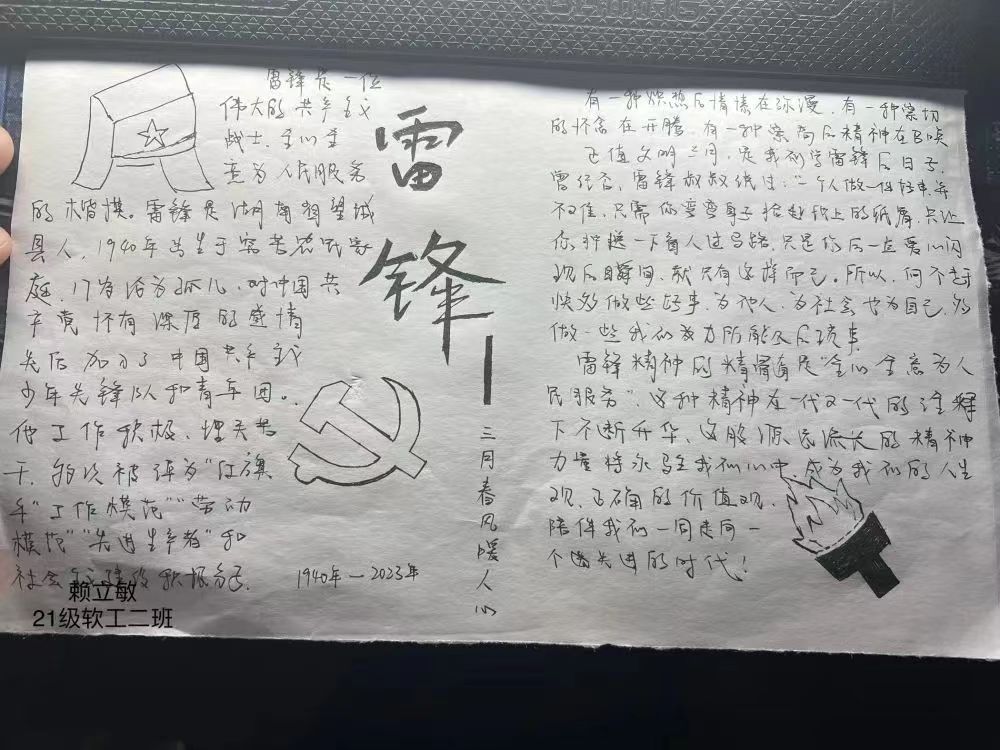 雷锋是一位
伟大的共产主义
战士，全心全
意为人民服务
的楷模。雷锋是湖南省望城
县人，1940年出生于穷苦农民家
庭，17岁沦为孤儿，对中国共
产党怀有深厚的感情
先后加入了中国共产主义
少年先锋队和青年团。
他工作积极，埋头苦
干，多次被评为“红旗
手”“工作模范”“劳动
模范”“先进生产者”和
社会主义建设积极分子.
1940年—2023年
赖立敏
21级软工二班
雷锋
三月春风暖人心
有一种炽热的情愫在弥漫，有一种深切
的怀念在升腾，有一种崇高的精神在召唤
正值文明三月，是我们学雷锋的日子，
曾经否，雷锋叔叔说过：“一个人做一件好事并
不难，只需你弯弯身子拾起地上的纸屑，只让
你搀一下盲人过马路，只是你的一点爱心闪
现的瞬间，就只有这样而已。所以，何不
快多做些好事，为他人，为社会也为自己，多
做一些我们力所能及的琐事
雷锋精神的精髓是“全心全意为人
民服务”，这种精神在一代又一代的诠释
下不断升华，这股源远流长的精神
力量将永驻我们心中，成为我们的人生
观，正确的价值观，
陪伴我们一同走向一
个先进的时代！